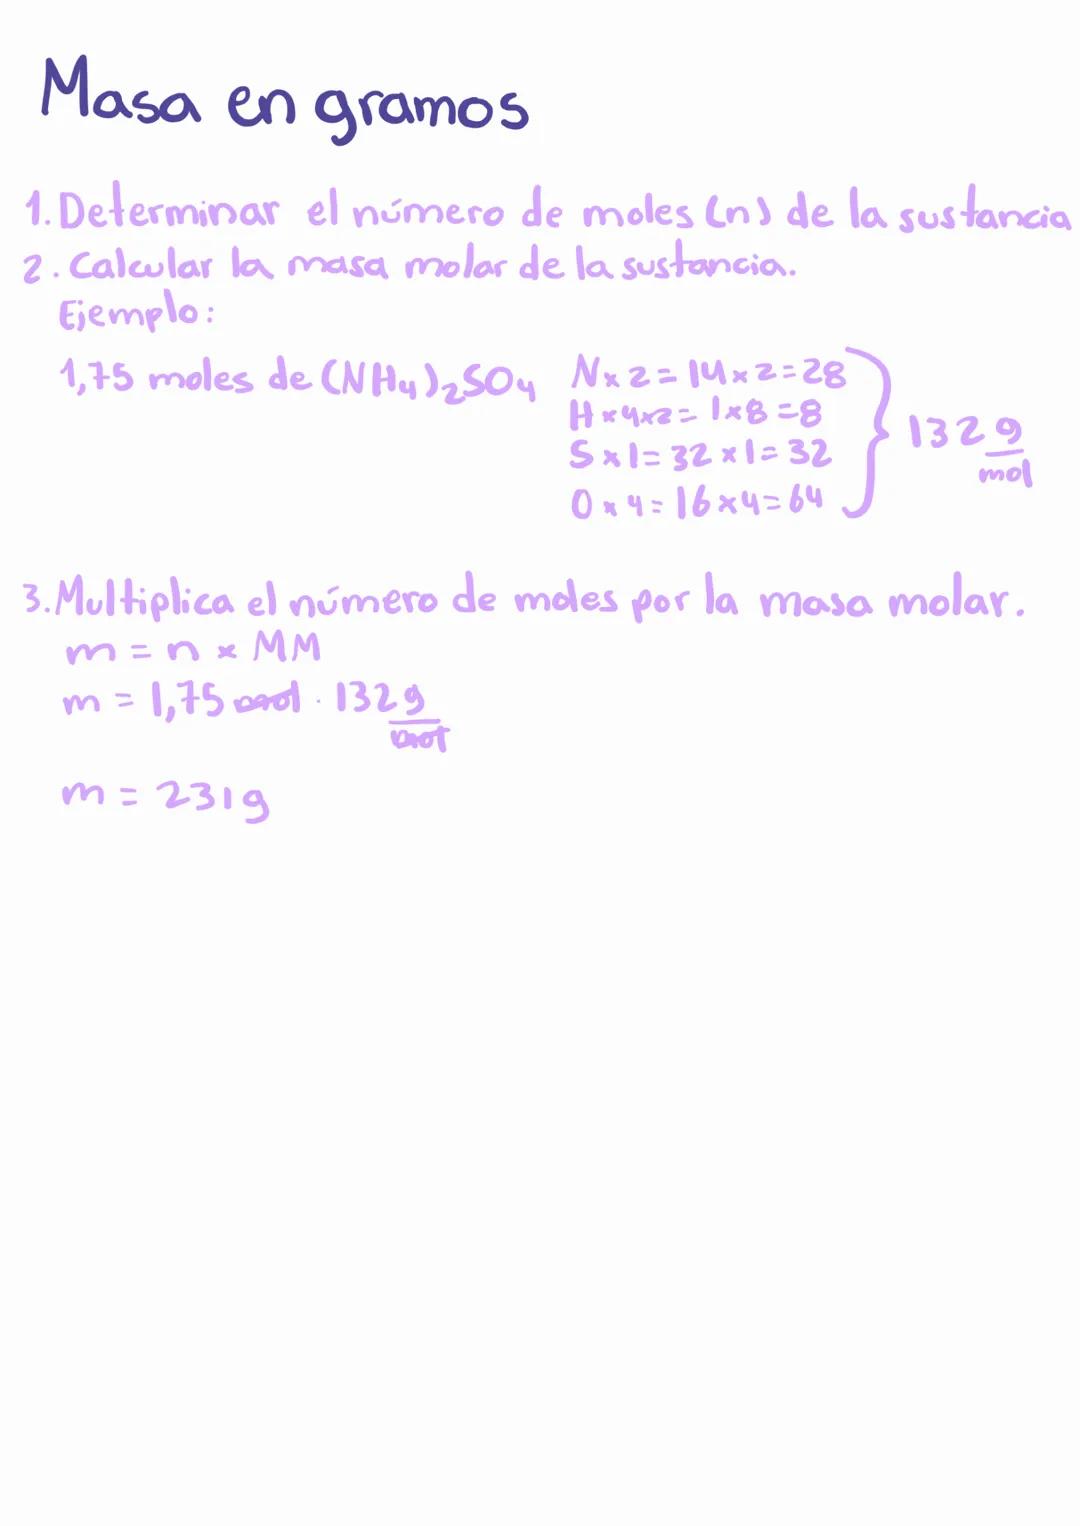 Masa en gramos
1. Determinar el número de moles (n) de la sustancia
2. Calcular la masa molar de la sustancia.
Ejemplo:
1,75 moles de (NH₄)₂SO₄
N x 2 = 14 x 2 = 28
H x 4 x 2 = 1 x 8 = 8
S x 1 = 32 x 1 = 32
O x 4 = 16 x 4 = 64
132 g/mol
3. Multiplica el número de moles por la masa molar.
m = n x MM
m = 1,75 mol · 132 g/mol
m = 231g